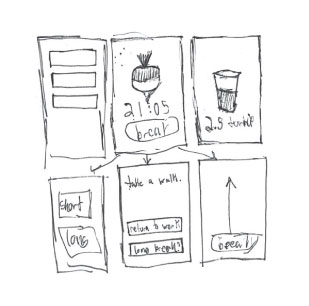 21:05
break
short
long
take a walk.
return to work
long break?
break